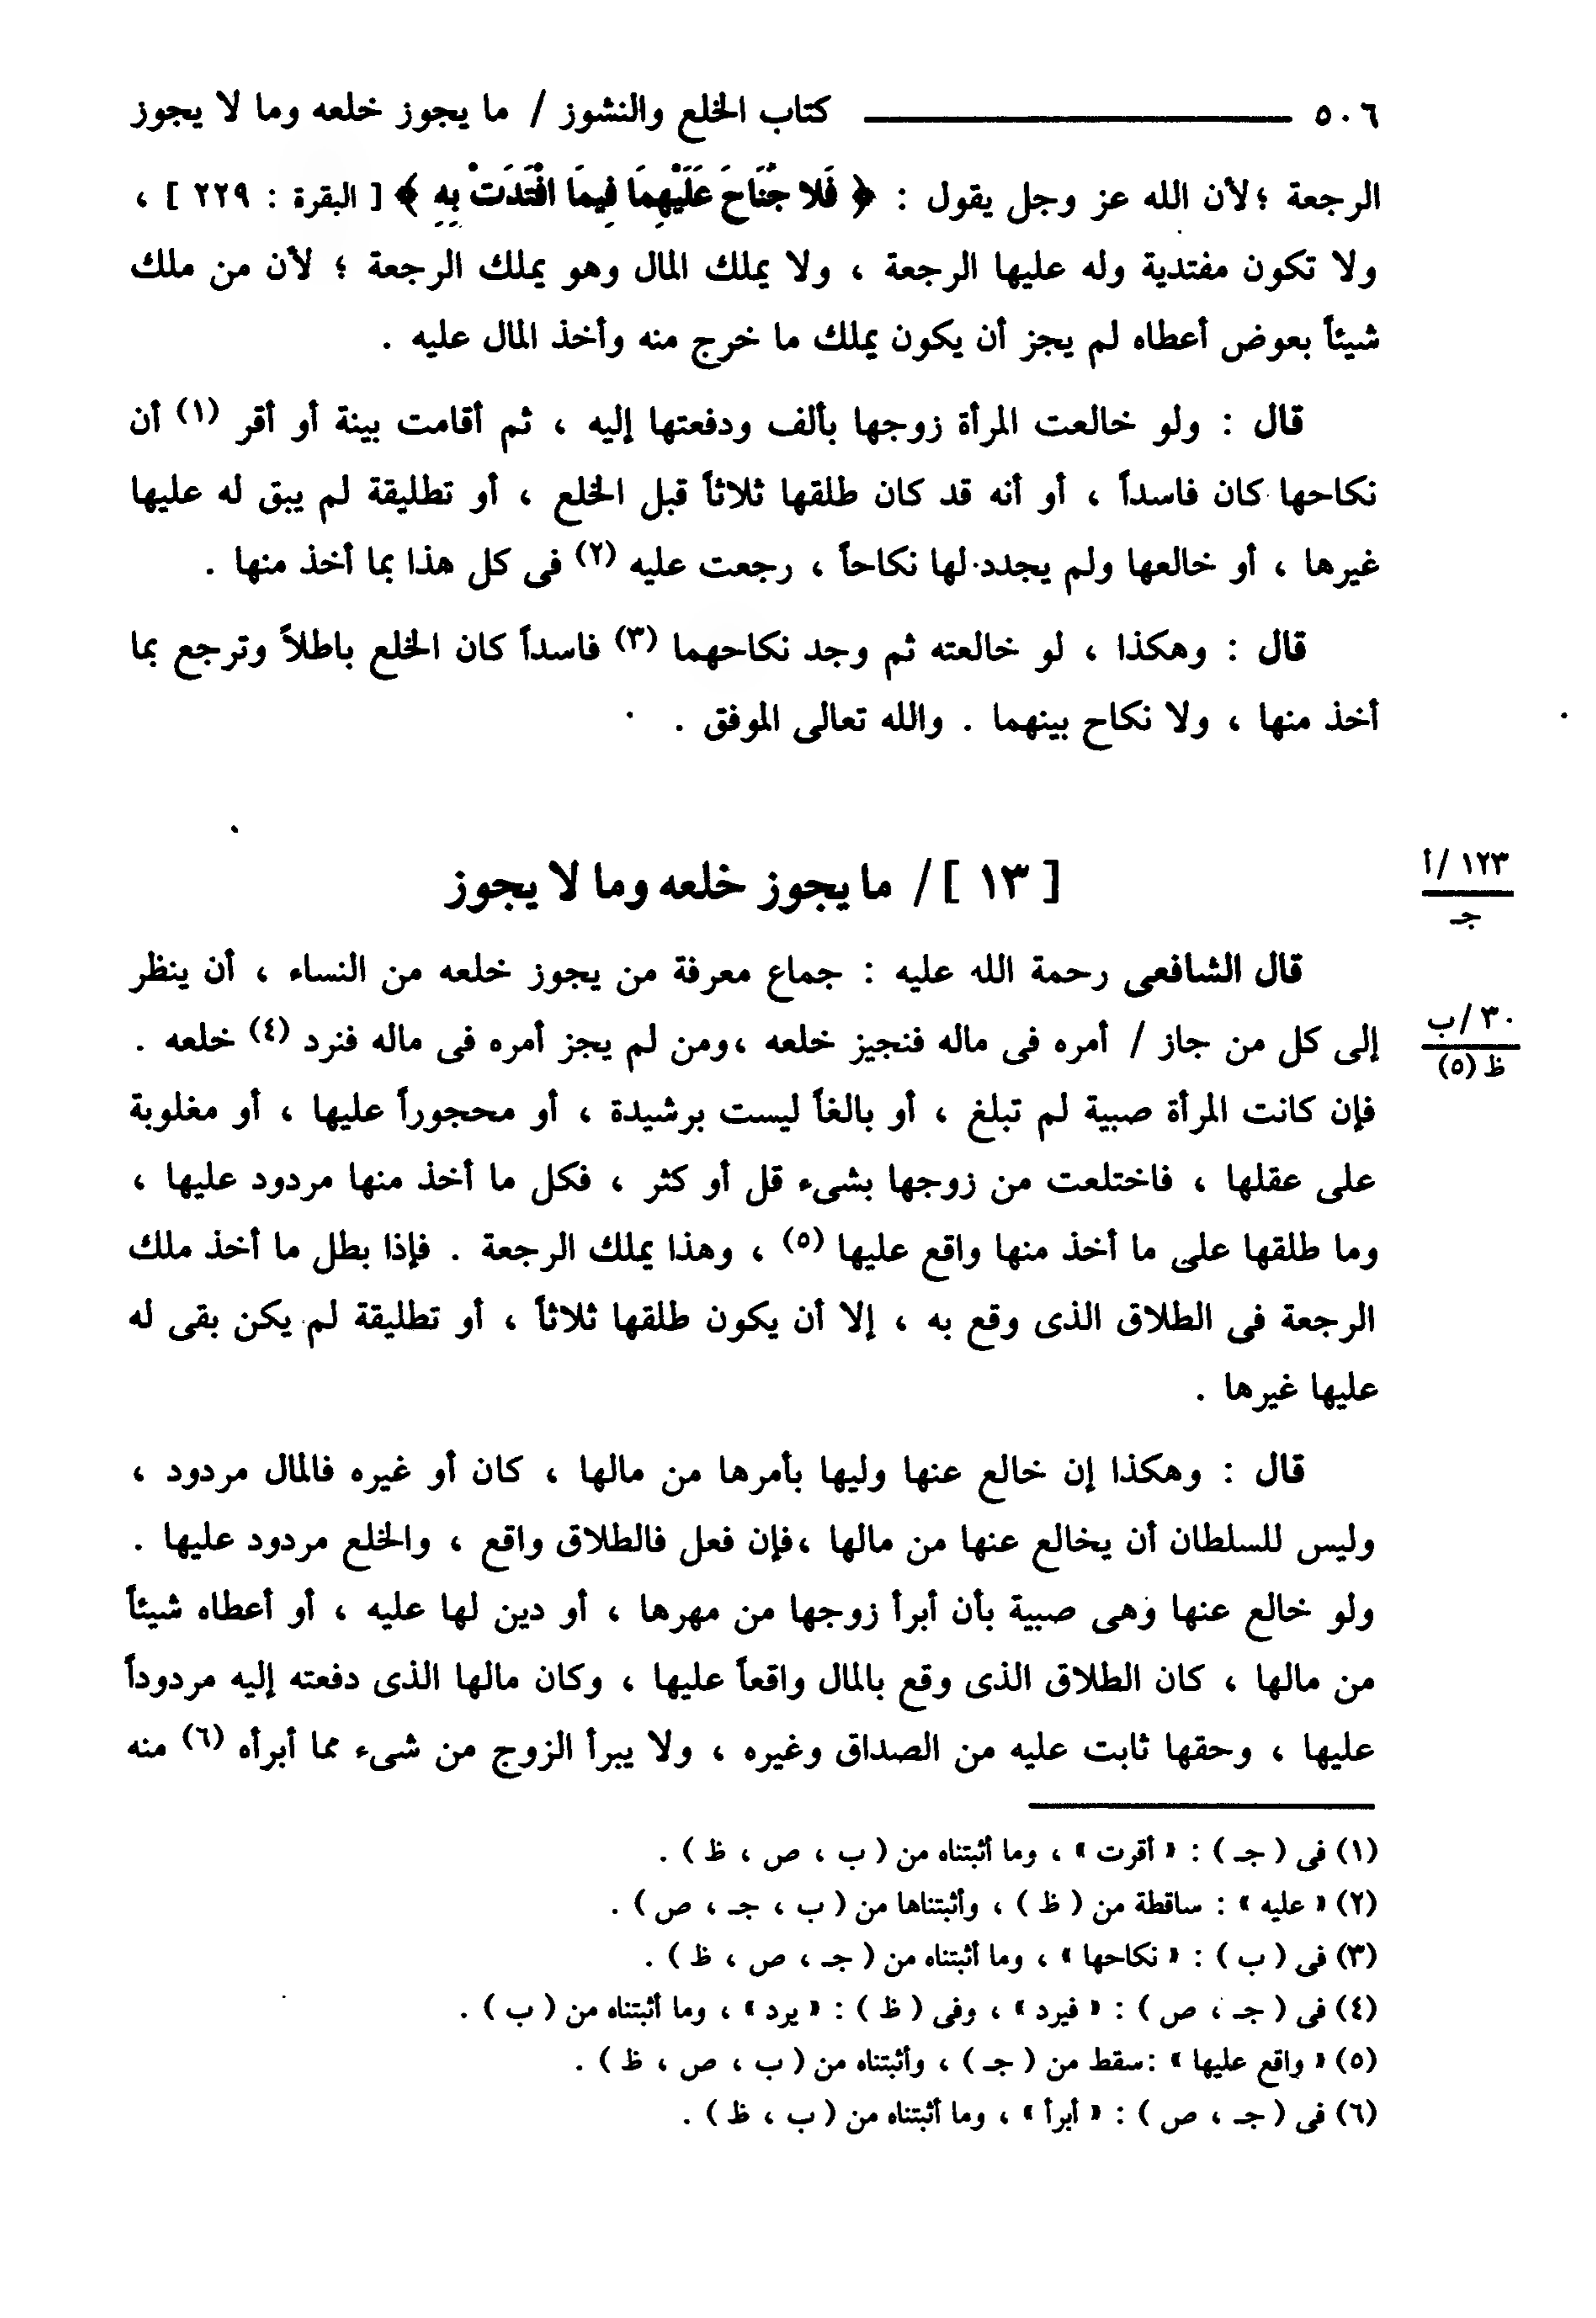 ٥٠٦ كتاب الخلع والنشوز / ما يجوز خلعه وما لا يجوز
الرجعة ؛لأن الله عز وجل يقول : ﴿ فَلا جُنَاحَ عَلَيْهِمَا فِيمَا افْتَدَتْ بِهِ ﴾ [ البقرة : ٢٢٩ ] ،
ولا تكون مفتدية وله عليها الرجعة ، ولا يملك المال وهو يملك الرجعة ؛ لأن من ملك
شيئاً بعوض أعطاه لم يجز أن يكون يملك ما خرج منه وأخذ المال عليه .
قال : ولو خالعت المرأة زوجها بألف ودفعتها إليه ، ثم أقامت بينة أو أقر (١) أن
نكاحها كان فاسداً ، أو أنه قد كان طلقها ثلاثاً قبل الخلع ، أو تطليقة لم يبق له عليها
غيرها ، أو خالعها ولم يجدد لها نكاحاً ، رجعت عليه (٢) فى كل هذا بما أخذ منها .
قال : وهكذا ، لو خالعته ثم وجد نكاحهما (٣) فاسداً كان الخلع باطلاً وترجع بما
أخذ منها ، ولا نكاح بينهما . والله تعالى الموفق .
[ ١٣ ] / ما يجوز خلعه وما لا يجوز
١٢٣ /أ
جـ
قال الشافعى رحمة الله عليه : جماع معرفة من يجوز خلعه من النساء ، أن ينظر
إلى كل من جاز / أمره فى ماله فنجيز خلعه ،ومن لم يجز أمره فى ماله فنرد (٤) خلعه .
٣٠ /ب
ظ (٥)
فإن كانت المرأة صبية لم تبلغ ، أو بالغاً ليست برشيدة ، أو محجوراً عليها ، أو مغلوبة
على عقلها ، فاختلعت من زوجها بشىء قل أو كثر ، فكل ما أخذ منها مردود عليها ،
وما طلقها على ما أخذ منها واقع عليها (٥) ، وهذا يملك الرجعة . فإذا بطل ما أخذ ملك
الرجعة فى الطلاق الذى وقع به ، إلا أن يكون طلقها ثلاثاً ، أو تطليقة لم يكن بقى له
عليها غيرها .
قال : وهكذا إن خالع عنها وليها بأمرها من مالها ، كان أو غيره فالمال مردود ،
وليس للسلطان أن يخالع عنها من مالها ،فإن فعل فالطلاق واقع ، والخلع مردود عليها .
ولو خالع عنها وهى صبية بأن أبرأ زوجها من مهرها ، أو دين لها عليه ، أو أعطاه شيئاً
من مالها ، كان الطلاق الذى وقع بالمال واقعاً عليها ، وكان مالها الذى دفعته إليه مردوداً
عليها ، وحقها ثابت عليه من الصداق وغيره ، ولا يبرأ الزوج من شىء مما أبرأه (٦) منه
(١) فى ( جـ ) : « أقرت » ، وما أثبتناه من ( ب ، ص ، ظ ) .
(٢) « عليه » : ساقطة من ( ظ ) ، وأثبتناها من ( ب ، جـ ، ص ) .
(٣) فى ( ب ) : « نكاحها » ، وما أثبتناه من ( جـ ، ص ، ظ ) .
(٤) فى ( جـ ، ص ) : « فيرد » ، وفى ( ظ ) : « يرد » ، وما أثبتناه من ( ب ) .
(٥) « واقع عليها » :سقط من ( جـ ) ، وأثبتناه من ( ب ، ص ، ظ ) .
(٦) فى ( جـ ، ص ) : « أبرأ » ، وما أثبتناه من ( ب ، ظ ) .